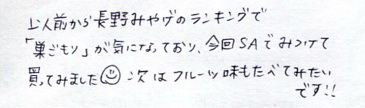 以前から長野みやげのランキングで
「巣ごもり」が気になっており、今回SAでみつけて
買ってみました☺ 次はフルーツ味もたべてみたい
です!!